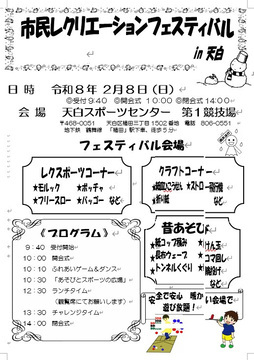 市民レクリエーションフェスティバル
in 天白
日 時 令和8年 2月8日(日)
◎受付9:40 ◎開会式 10:00 ◎閉会式14:00
会 場 天白スポーツセンター 第1競技場
〒468-0051 天白区植田三丁目1502番地 電話 806-0551
地下鉄 鶴舞線 「植田」駅下車、徒歩5分
フェスティバル会場
レクスポーツコーナー
★モルック ★ボッチャ
★フリースロー ★バッゴー など
クラフトコーナー
★ストロー飛行機
★折り紙 など
昔あそび
★紙コップ積み ★けん玉
★長なわウェーブ ★コマ回し
★トンネルくぐり など
《プログラム》
9:40 受付開始
10:00 開会式
10:10 ふれあいゲーム&ダンス
11:30 「あそびとスポーツの広場」
12:30 ランチタイム
(観覧席にてお願いします)
13:30 チャレンジタイム
14:00 閉会式
安全で安心 暖かい会場で
遊び放題!